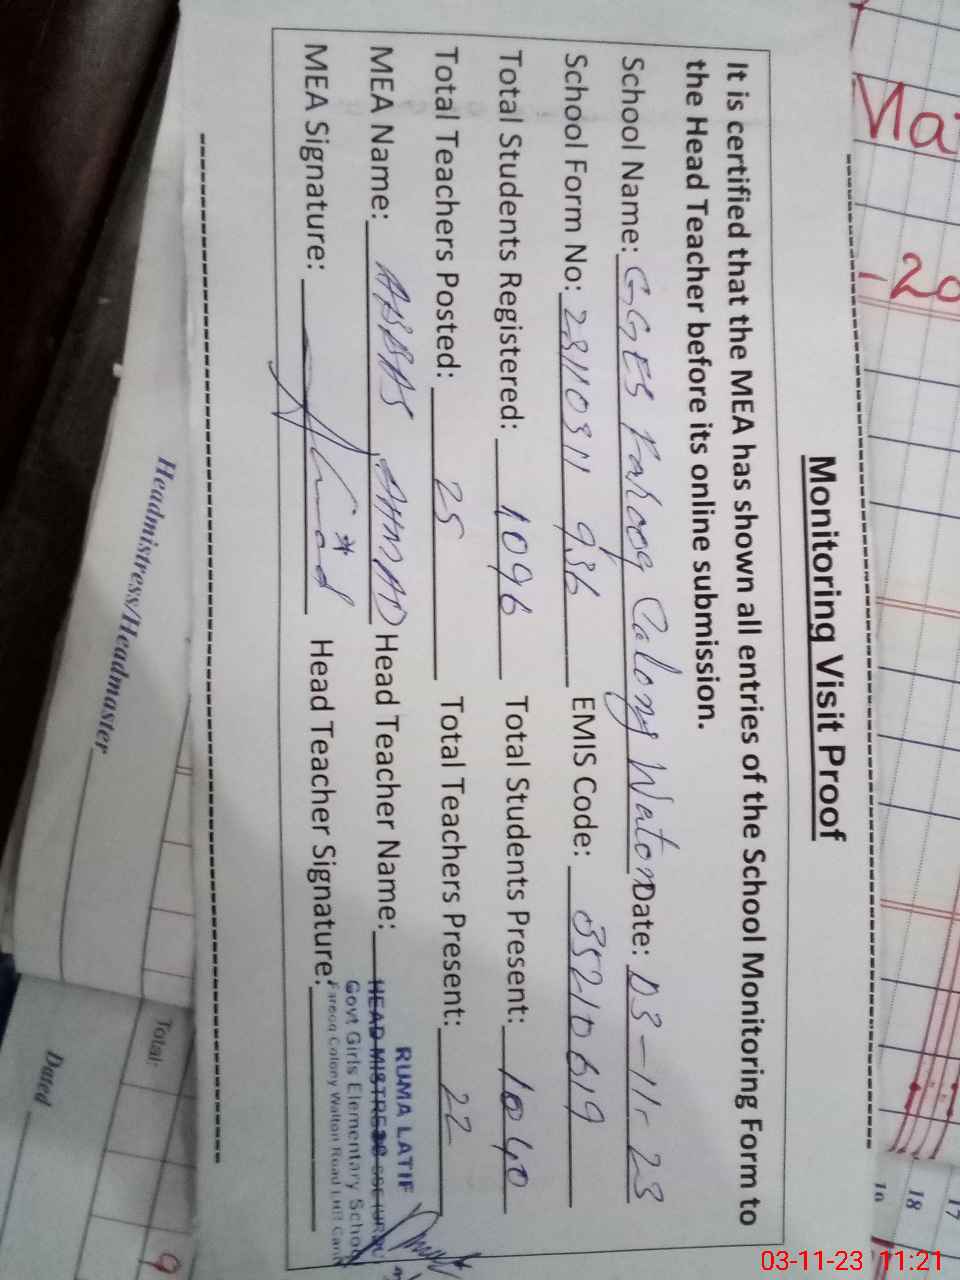 Monitoring Visit Proof
It is certified that the MEA has shown all entries of the School Monitoring Form to
the Head Teacher before its online submission.
School Name: GGES Farooq Colony Walton Date: 03-11-23
School Form No: 23110311 936 EMIS Code: 35210619
Total Students Registered: 1096 Total Students Present: 1040
Total Teachers Posted: 25 Total Teachers Present: 22
MEA Name: ABBAS AHMAD Head Teacher Name:
MEA Signature: Head Teacher Signature:
RUMA LATIF
HEAD MISTRESS
Govt Girls Elementary School
Farooq Colony Walton Road LHR Cantt
Headmistress/Headmaster
Total:
Dated
9
-20
17
18
03-11-23 11:21